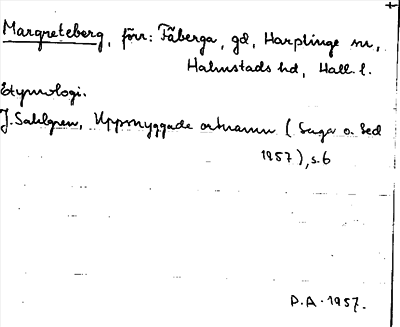 Margreteberg, förr: Fäberga, gd, Harplinge sn,
Halmstads hd, Hall. l.
Etymologi.
J. Sahlgren, Uppsnyggade ortnamn (Saga o. Sed
1957), s. 6
D.A. 1957.